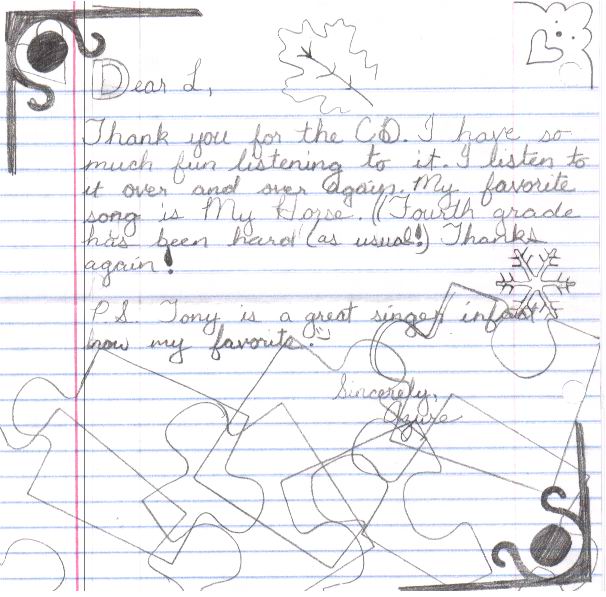 Dear L,
Thank you for the CD. I have so
much fun listening to it. I listen to
it over and over again. My favorite
song is My Horse. (Fourth grade
has been hard (as usual!) Thanks
again!
P.S. Tony is a great singer infact
now my favorite.
Sincerely,
Azure